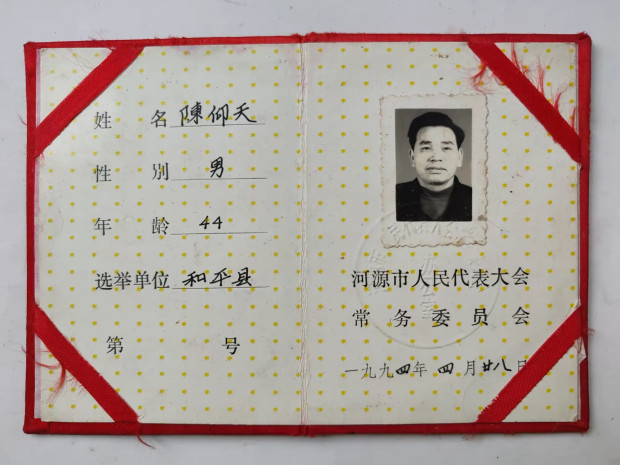 姓 名 陳仰天
性 别 男
年 龄 44
选举单位 和平县
第 号
河源市人民代表大会
常务委员会
一九九四年 四 月 廿八日